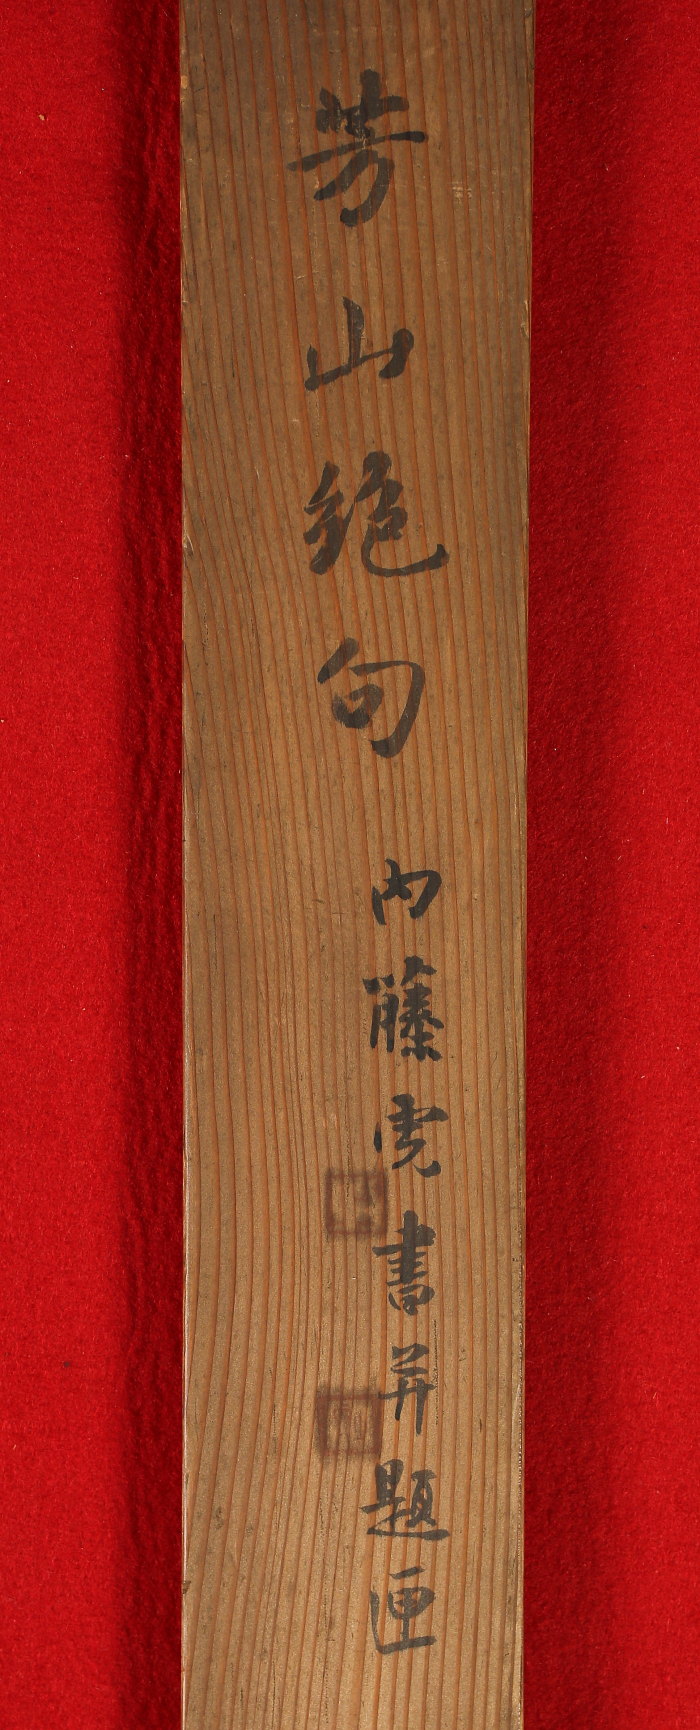 芳山絶句
内藤虎書并題匣